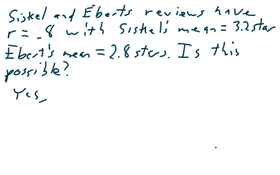 Siskel and Eberts reviews have
r = .8 with Siskel's mean = 3.2 star
Ebert's mean = 2.8 stars. Is this
possible?
Yes,